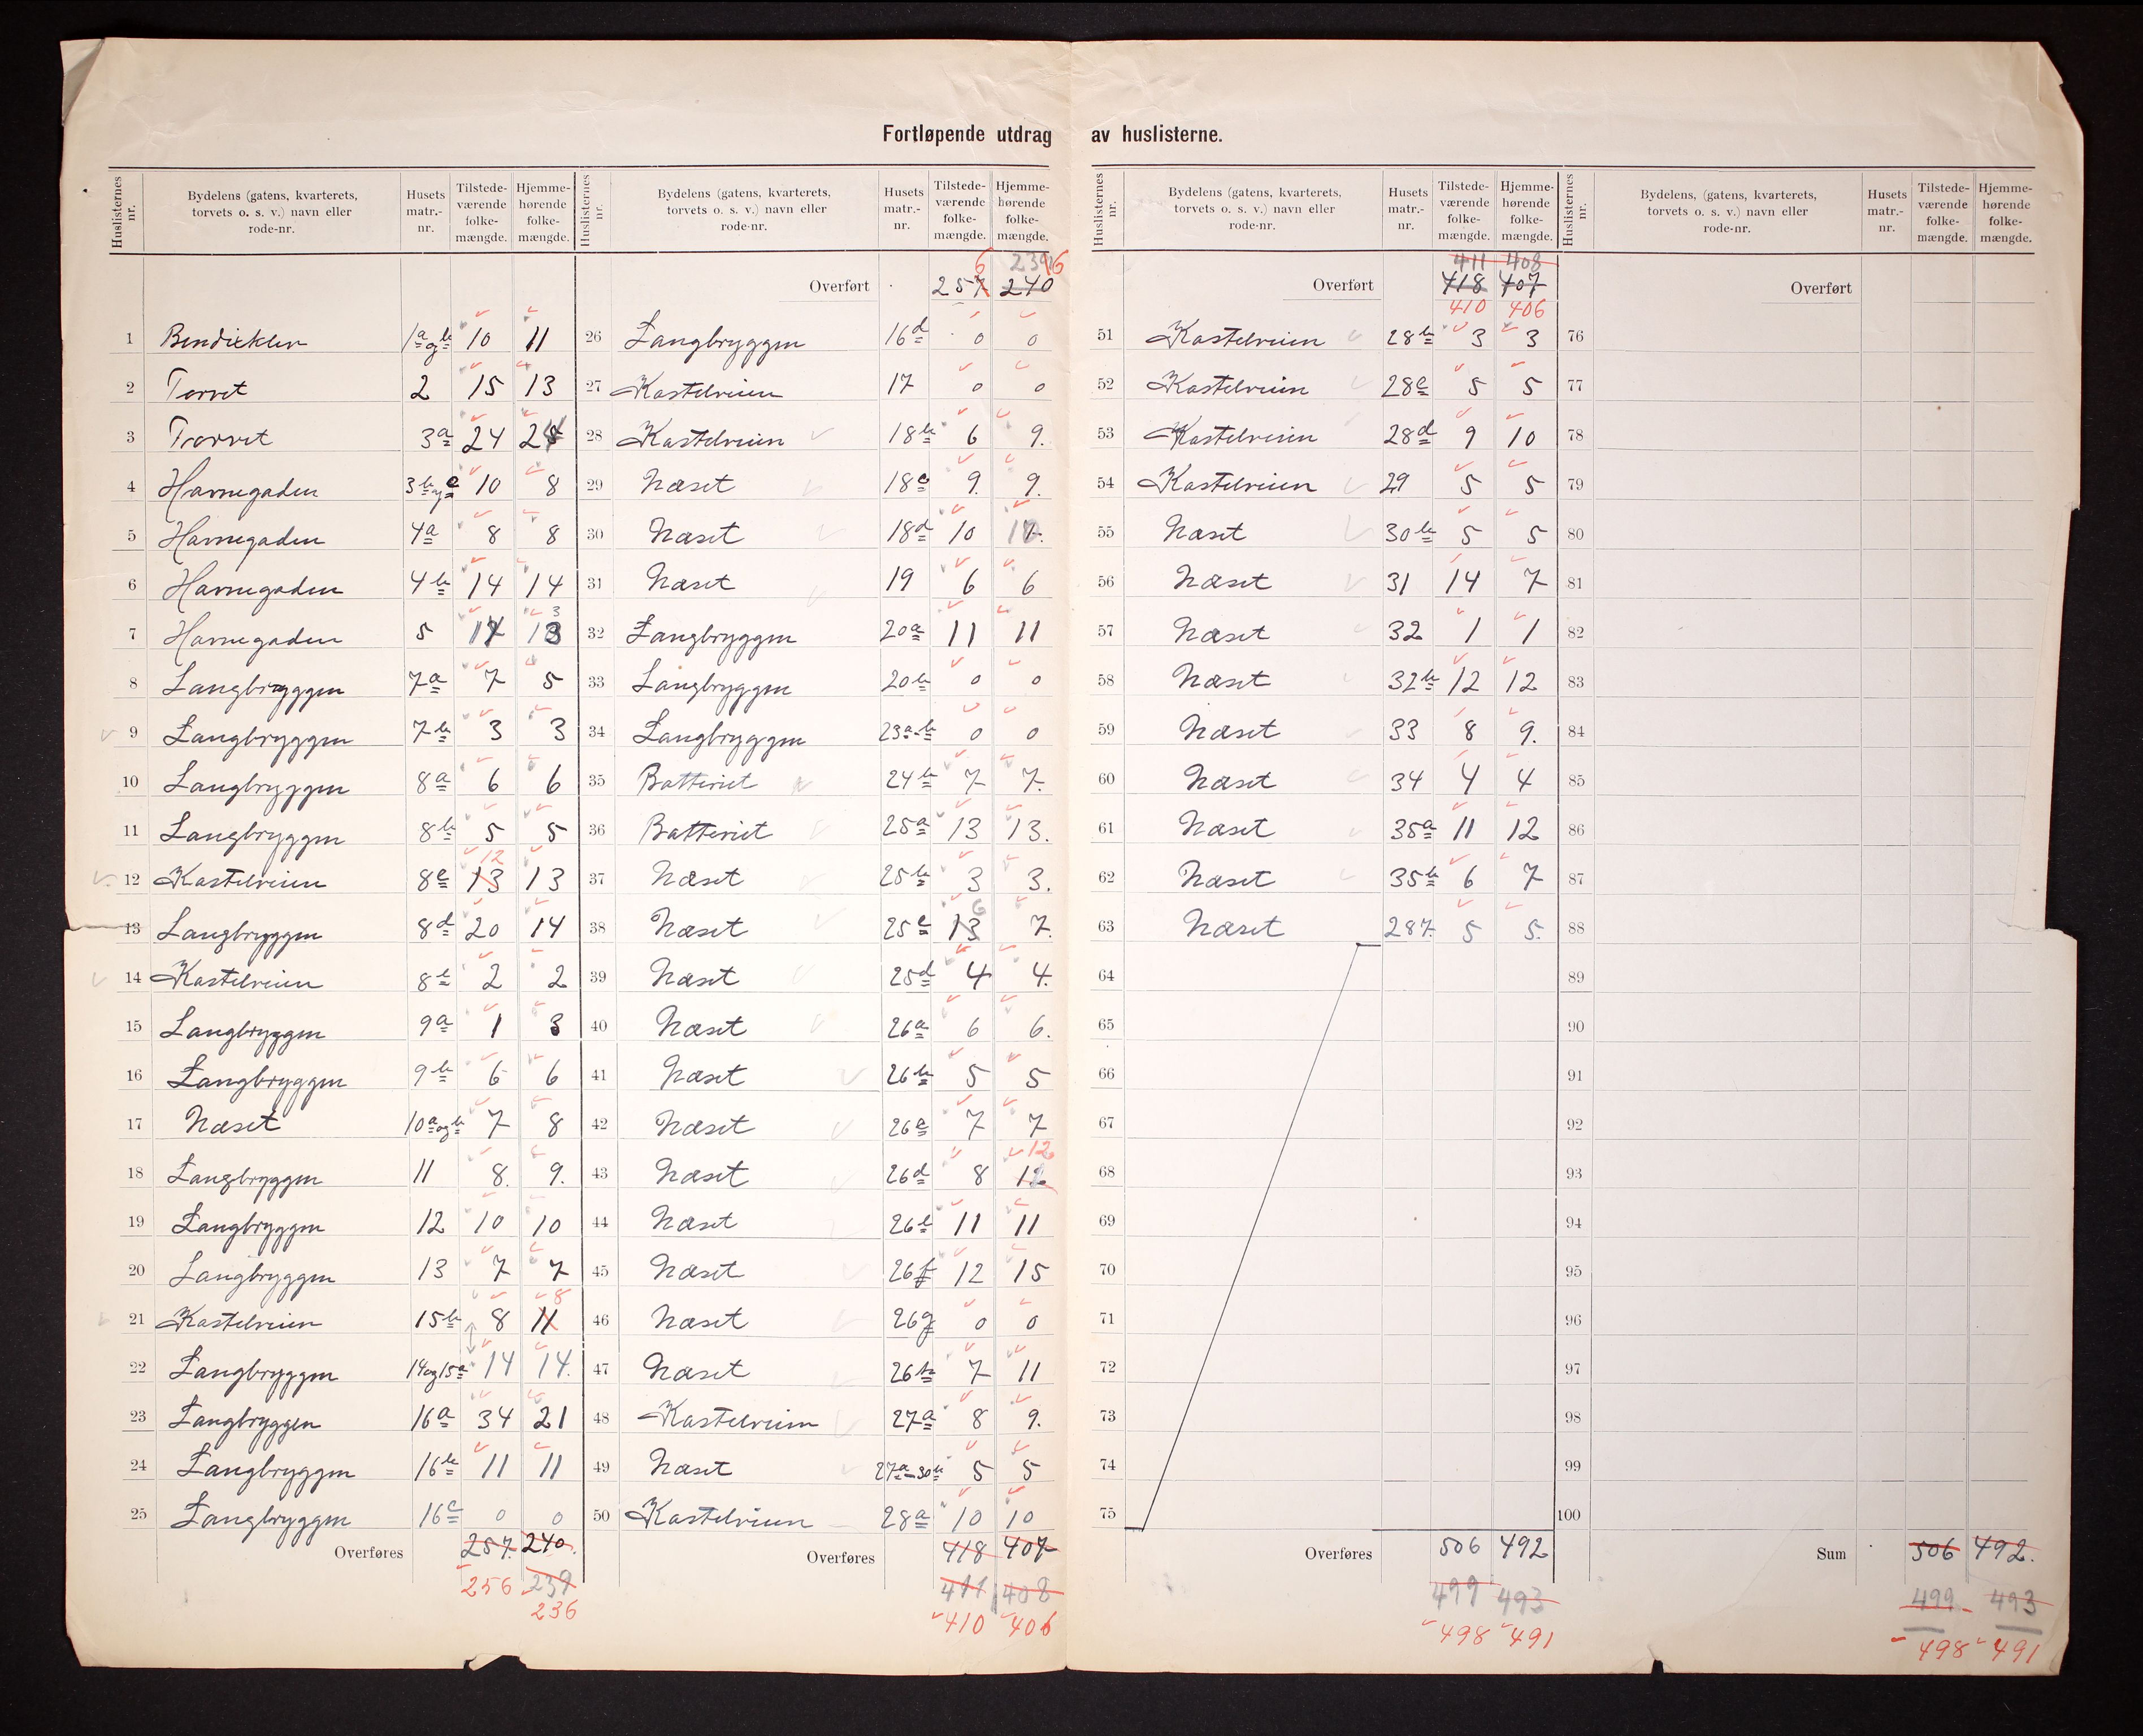 Fortløpende utdrag av huslisterne.
Huslisternes nr. | Bydelens (gatens, kvarterets, torvets o. s. v.) navn eller rode-nr. | Husets matr.-nr. | Tilstede-værende folke-mængde. | Hjemme-hørende folke-mængde.
1 Bendixklev 1a og b 10 11
2 Torvet 2 15 13
3 Torvet 3a 24 24
4 Havnegaden 3b og c 10 8
5 Havnegaden 4a 8 8
6 Havnegaden 4b 14 14
7 Havnegaden 5 17 13 3
8 Langbryggen 7a 7 5
9 Langbryggen 7b 3 3
10 Langbryggen 8a 6 6
11 Langbryggen 8b 5 5
12 Kastelveien 8c 13 12 13
13 Langbryggen 8d 20 14
14 Kastelveien 8e 2 2
15 Langbryggen 9a 1 3
16 Langbryggen 9b 6 6
17 Næset 10a og b 7 8
18 Langbryggen 11 8. 9.
19 Langbryggen 12 10 10
20 Langbryggen 13 7 7
21 Kastelveien 15b 8 11 8
22 Langbryggen 14 og 15a 14 14.
23 Langbryggen 16a 34 21
24 Langbryggen 16b 11 11
25 Langbryggen 16c 0 0
Overføres 257. 240.
256 239
236
Huslisternes nr. | Bydelens (gatens, kvarterets, torvets o. s. v.) navn eller rode-nr. | Husets matr.-nr. | Tilstede-værende folke-mængde. | Hjemme-hørende folke-mængde.
6 239 6
Overført 257 240
26 Langbryggen 16d 0 0
27 Kastelveien 17 0 0
28 Kastelveien 18b 6 9.
29 Næset 18c 9. 9.
30 Næset 18d 10
31 Næset 19 6 6
32 Langbryggen 20a 11 11
33 Langbryggen 20b 0 0
34 Langbryggen 23a-b 0 0
35 Batteriet 24b 7 7.
36 Batteriet 25a 13 13.
37 Næset 25b 3 3.
38 Næset 25c 13 6 7.
39 Næset 25d 4 4.
40 Næset 26a 6 6.
41 Næset 26b 5 5
42 Næset 26c 7 7
43 Næset 26d 8 12 12
44 Næset 26e 11 11
45 Næset 26f 12 15
46 Næset 26g 0 0
47 Næset 26h 7 11
48 Kastelveien 27a 8 9.
49 Næset 27a-30b 5 5
50 Kastelveien 28a 10 10
Overføres 418 407
411 408
410 406
Huslisternes nr. | Bydelens (gatens, kvarterets, torvets o. s. v.) navn eller rode-nr. | Husets matr.-nr. | Tilstede-værende folke-mængde. | Hjemme-hørende folke-mængde.
411 408
Overført 418 407
410 406
51 Kastelveien 28b 3 3
52 Kastelveien 28c 5 5
53 Kastelveien 28d 9 10
54 Kastelveien 29 5 5
55 Næset 30b 5 5
56 Næset 31 14 7
57 Næset 32 1 1
58 Næset 32b 12 12
59 Næset 33 8 9.
60 Næset 34 4 4
61 Næset 35a 11 12
62 Næset 35b 6 7
63 Næset 287. 5 5.
64
65
66
67
68
69
70
71
72
73
74
75
Overføres 506 492
499 493
498 491
Huslisternes nr. | Bydelens, (gatens, kvarterets, torvets o. s. v.) navn eller rode-nr. | Husets matr.-nr. | Tilstede-værende folke-mængde. | Hjemme-hørende folke-mængde.
Overført
76
77
78
79
80
81
82
83
84
85
86
87
88
89
90
91
92
93
94
95
96
97
98
99
100
Sum 506 492.
499 493
498 491